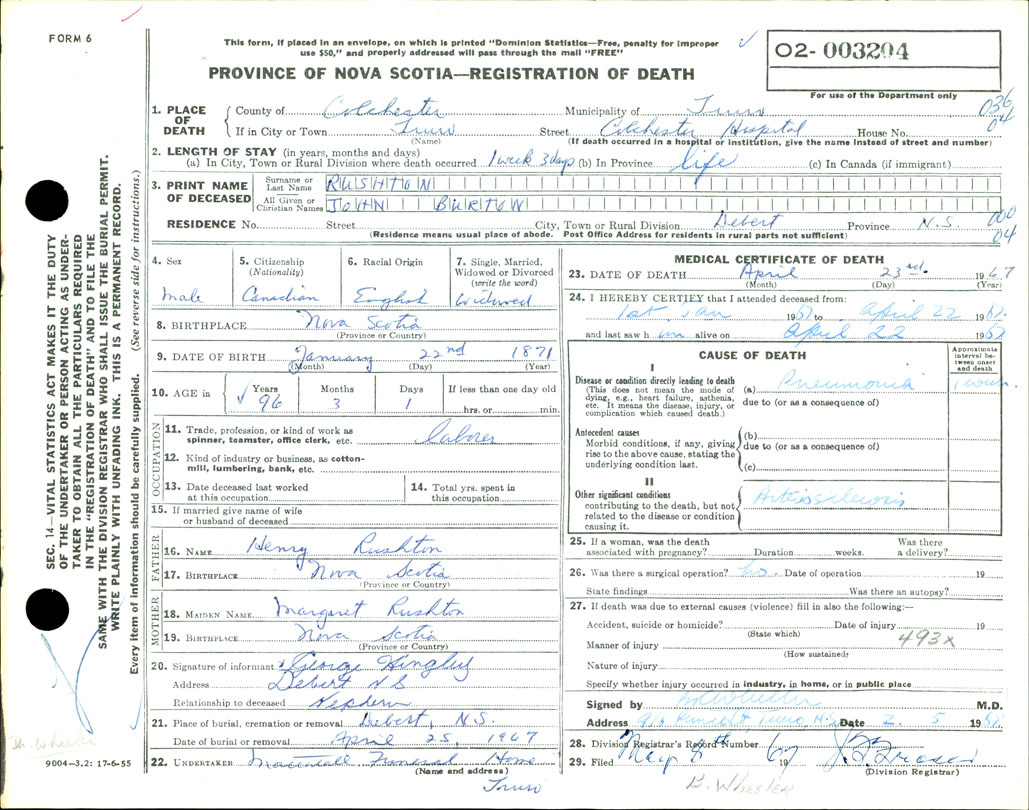 FORM 6
This form, if placed in an envelope, on which is printed "Dominion Statistics—Free, penalty for improper
use $50," and properly addressed will pass through the mail "FREE"
02-003204
For use of the Department only
PROVINCE OF NOVA SCOTIA—REGISTRATION OF DEATH
1. PLACE OF DEATH
County of Colchester Municipality of Truro 036
If in City or Town Truro Street Colchester Hospital House No. 04
(Name) (If death occurred in a hospital or institution, give the name instead of street and number)
2. LENGTH OF STAY (in years, months and days)
(a) In City, Town or Rural Division where death occurred 1 week 3 days (b) In Province life (c) In Canada (if immigrant)
3. PRINT NAME OF DECEASED
Surname or Last Name RUSHTON
All Given or Christian Names JOHN BURTON
RESIDENCE No. Street City, Town or Rural Division Debert Province N.S. 000
(Residence means usual place of abode. Post Office Address for residents in rural parts not sufficient) 04
4. Sex
Male
5. Citizenship
(Nationality)
Canadian
6. Racial Origin
English
7. Single, Married, Widowed or Divorced
(write the word)
Widowed
8. BIRTHPLACE Nova Scotia
(Province or Country)
9. DATE OF BIRTH January 22nd 1871
(Month) (Day) (Year)
10. AGE in Years Months Days If less than one day old
96 3 1 hrs. or min.
OCCUPATION
11. Trade, profession, or kind of work as
spinner, teamster, office clerk, etc. laborer
12. Kind of industry or business, as cotton-
mill, lumbering, bank, etc.
13. Date deceased last worked
at this occupation
14. Total yrs. spent in
this occupation
15. If married give name of wife
or husband of deceased
FATHER
16. NAME Henry Rushton
17. BIRTHPLACE Nova Scotia
(Province or Country)
MOTHER
18. MAIDEN NAME Margaret Rushton
19. BIRTHPLACE Nova Scotia
(Province or Country)
20. Signature of informant George Hingley
Address Debert N S
Relationship to deceased
21. Place of burial, cremation or removal Debert, N.S.
Date of burial or removal April 25, 1967
22. UNDERTAKER Funeral Home
(Name and address)
Truro
MEDICAL CERTIFICATE OF DEATH
23. DATE OF DEATH April 23rd. 1967
(Month) (Day) (Year)
24. I HEREBY CERTIFY that I attended deceased from:
1st Jan 1967 to April 22 1967
and last saw him alive on April 22 1967
CAUSE OF DEATH
Approximate interval between onset and death
I
Disease or condition directly leading to death
(This does not mean the mode of
dying, e.g., heart failure, asthenia,
etc. It means the disease, injury, or
complication which caused death.)
(a) Pneumonia 1 week
due to (or as a consequence of)
Antecedent causes
Morbid conditions, if any, giving
rise to the above cause, stating the
underlying condition last.
(b)
due to (or as a consequence of)
(c)
II
Other significant conditions
contributing to the death, but not
related to the disease or condition
causing it.
Arteriosclerosis
25. If a woman, was the death
associated with pregnancy? Duration weeks. Was there a delivery?
26. Was there a surgical operation? No. Date of operation 19
State findings Was there an autopsy?
27. If death was due to external causes (violence) fill in also the following:—
Accident, suicide or homicide? Date of injury 19
(State which)
Manner of injury 493X
(How sustained)
Nature of injury
Specify whether injury occurred in industry, in home, or in public place
Signed by M.D.
Address Truro, N.S. Date 2. 5 1967
28. Division Registrar's Record Number
29. Filed May 8th 1967
(Division Registrar)
B. WHEELER
SEC. 14—VITAL STATISTICS ACT MAKES IT THE DUTY
OF THE UNDERTAKER OR PERSON ACTING AS UNDER-
TAKER TO OBTAIN ALL THE PARTICULARS REQUIRED
IN THE "REGISTRATION OF DEATH" AND TO FILE THE
SAME WITH THE DIVISION REGISTRAR WHO SHALL ISSUE THE BURIAL PERMIT.
WRITE PLAINLY WITH UNFADING INK. THIS IS A PERMANENT RECORD.
Every item of information should be carefully supplied. (See reverse side for instructions.)
Dr. Wheeler
9004—3.2: 17-6-55